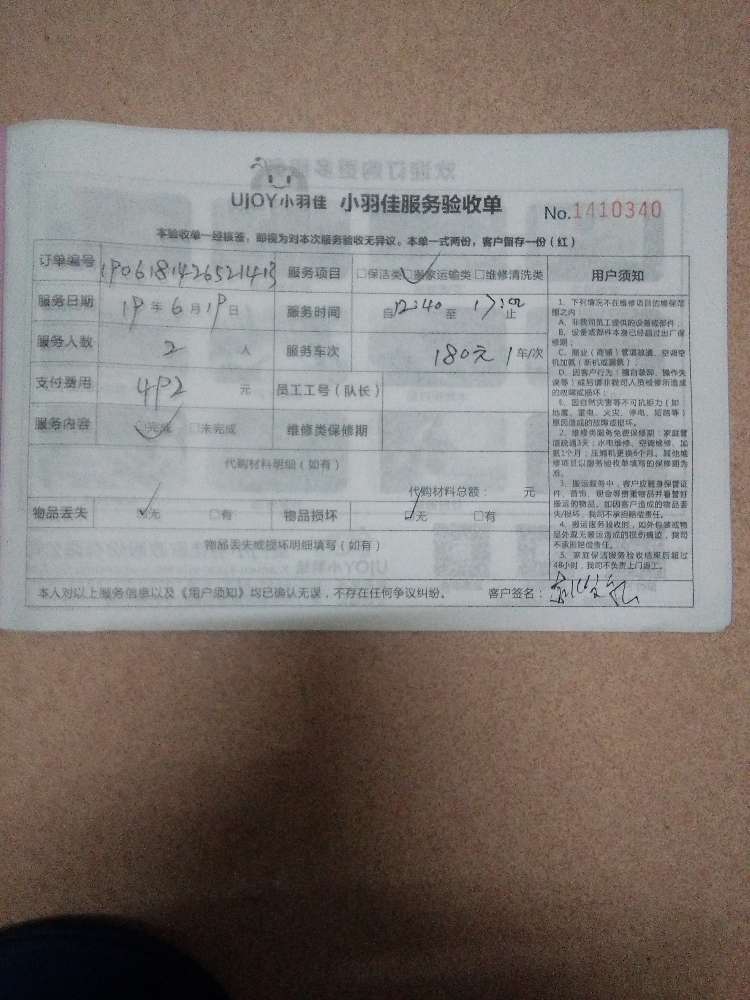 UJOY小羽佳 小羽佳服务验收单 No.1410340
本验收单一经核签，即视为对本次服务验收无异议。本单一式两份，客户留存一份（红）
订单编号 1906181426521413 服务项目 □保洁类□搬家运输类□维修清洗类 用户须知
服务日期 19年6月19日 服务时间 自12:40至17:00止
服务人数 2人 服务车次 180元1车/次
支付费用 492元 员工工号（队长）
服务内容 □完成 □未完成 维修类保修期
代购材料明细（如有）
代购材料总额： 元
物品丢失 □无 □有 物品损坏 □无 □有
物品丢失或损坏明细填写（如有）
本人对以上服务信息以及《用户须知》均已确认无误，不存在任何争议纠纷。 客户签名：
1、下列情况不在维修项目的维保范围之内
A、非我司员工提供的设备或部件；
B、设备或部件本身已经超过出厂保修期；
C、商业（商铺）管道疏通、空调空机加氟（新机或漏氟）；
D、因客户行为：擅自装卸、操作失误等）或后请非我司人员维修所造成的故障或损坏；
E、因自然灾害等不可抗拒力（如：地震、雷电、火灾、停电、短路等）原因造成的故障或损坏。
2、维修类服务免费保修期：家庭管道疏通3天；水电维修、空调维修、加氟1个月；压缩机更换6个月。其他维修项目以服务验收单填写的保修期为准。
3、搬运服务中，客户应随身保管证件、首饰、现金等贵重物品并看管好搬运的物品。如因客户造成的物品丢失/损坏，我司不承担赔偿责任。
4、搬运服务验收时，如外包装或物品外观无搬运造成的损伤痕迹，我司不承担赔偿责任。
5、家庭保洁服务验收结束后超过48小时，我司不负责上门返工。